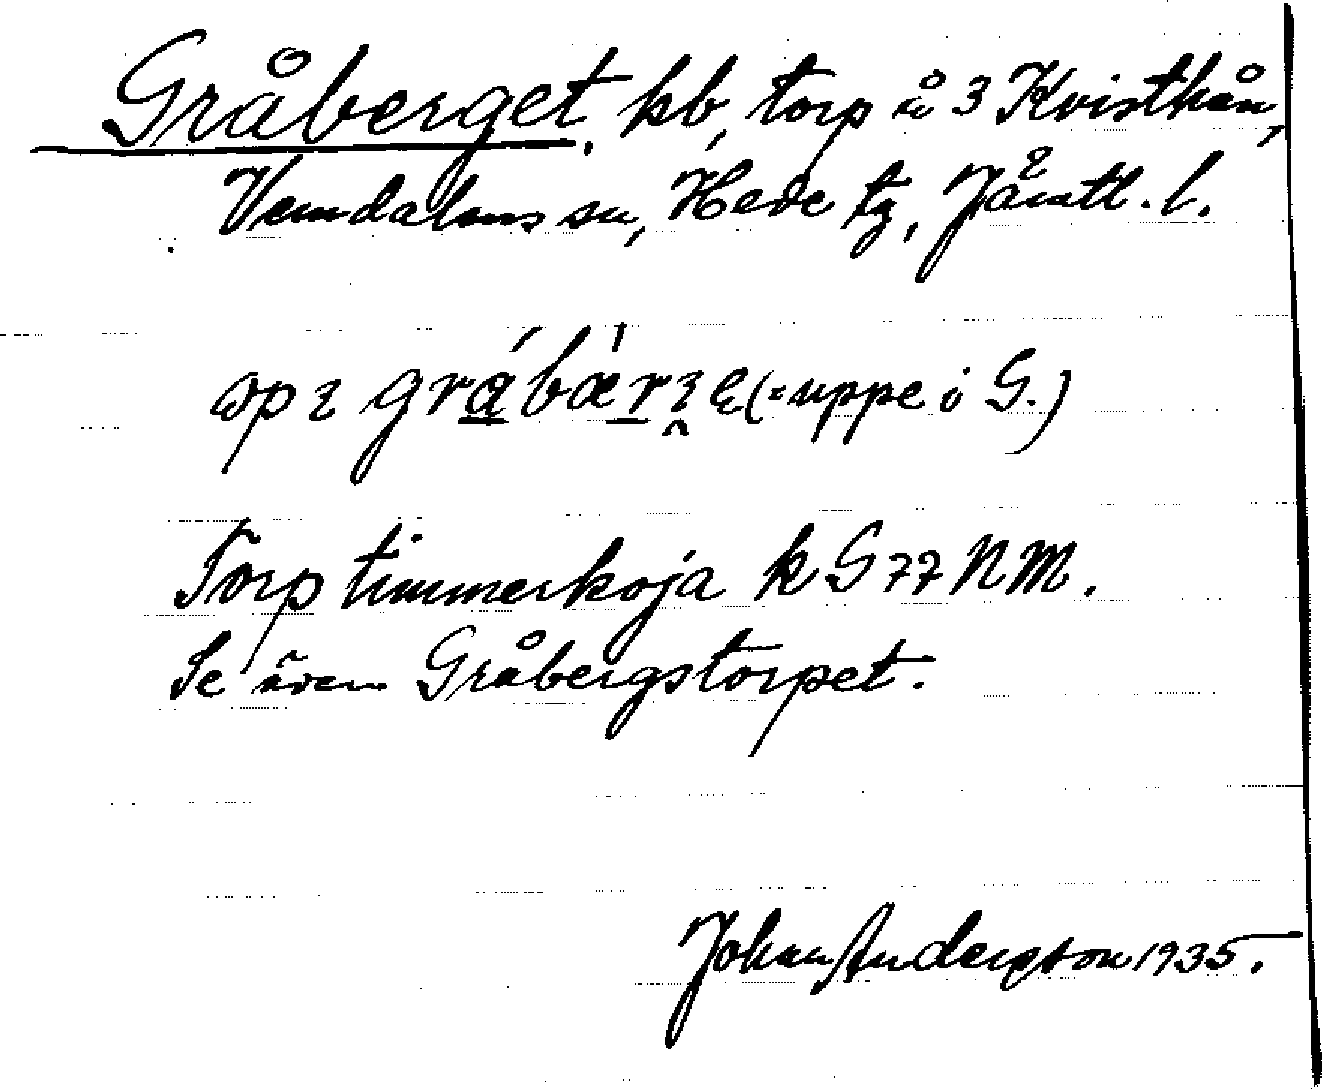 Gråberget, kb, torp å 3 Kvisthån,
Vemdalens sn, Hede tg, Jämtl. l.
(= uppe i G.)
Torp timmerkoja k G 77 NM.
Se även Gråbergstorpet.
Johan Andersson 1935.